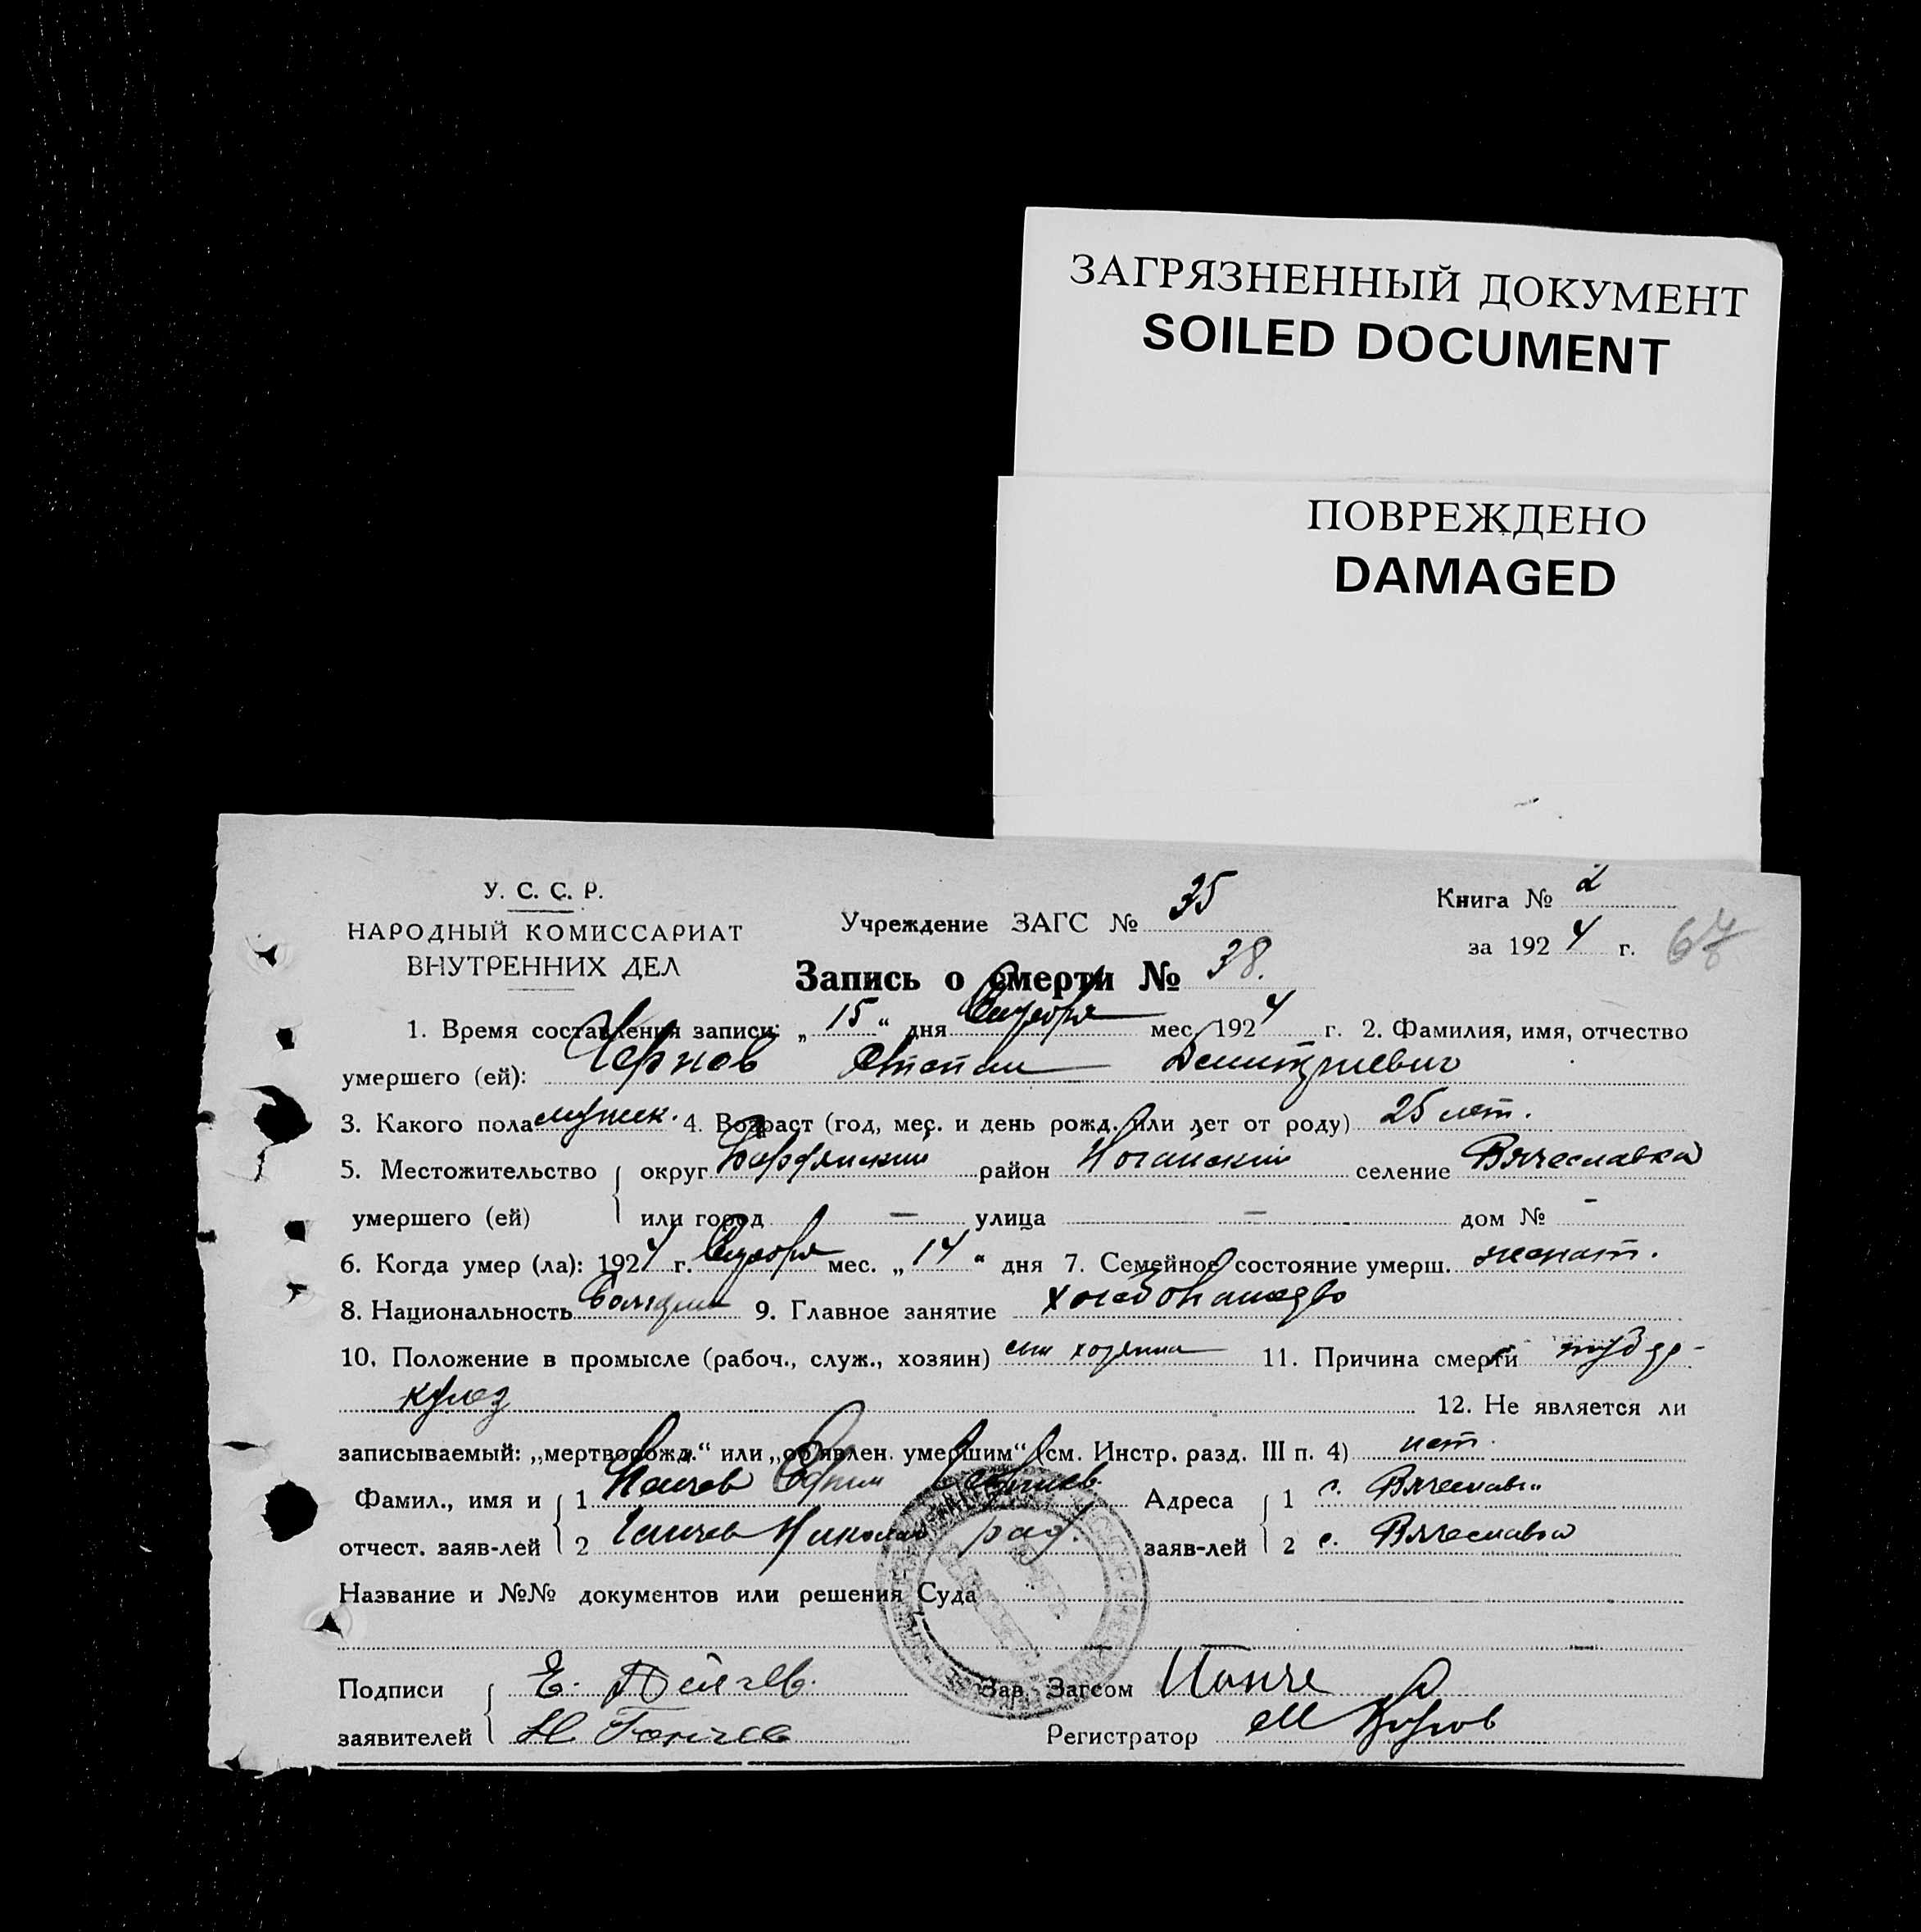 ЗАГРЯЗНЕННЫЙ ДОКУМЕНТ
SOILED DOCUMENT
ПОВРЕЖДЕНО
DAMAGED
У. С. С. Р.
НАРОДНЫЙ КОМИССАРИАТ
ВНУТРЕННИХ ДЕЛ
Учреждение ЗАГС № 35
Книга № 2
за 1924 г.
67
Запись о смерти № 38.
1. Время составления записи: „ 15 “ дня мес. 1924 г. 2. Фамилия, имя, отчество
умершего (ей): Чернов Степан Дмитриевич
3. Какого пола мужск. 4. Возраст (год, мес. и день рожд. или лет от роду) 25 лет.
5. Местожительство округ Бердянский район Ногайский селение Вячеславка
умершего (ей) или город — улица — дом № -
6. Когда умер (ла): 1924 г. мес. „ 14 “ дня 7. Семейное состояние умерш. женат.
8. Национальность болгарин 9. Главное занятие хлебопашество
10. Положение в промысле (рабоч., служ., хозяин) сын хозяина 11. Причина смерти тубер-
кулез 12. Не является ли
записываемый: „мертворожд.“ или „об'явлен. умершим“ (см. Инстр. разд. III п. 4) нет.
Фамил., имя и 1 Адреса 1 с. Вячеславка
отчест. заяв-лей 2 Николай заяв-лей 2 с. Вячеславка
Название и №№ документов или решения Суда
Подписи Е. Зав. Загсом
заявителей Н. Регистратор М